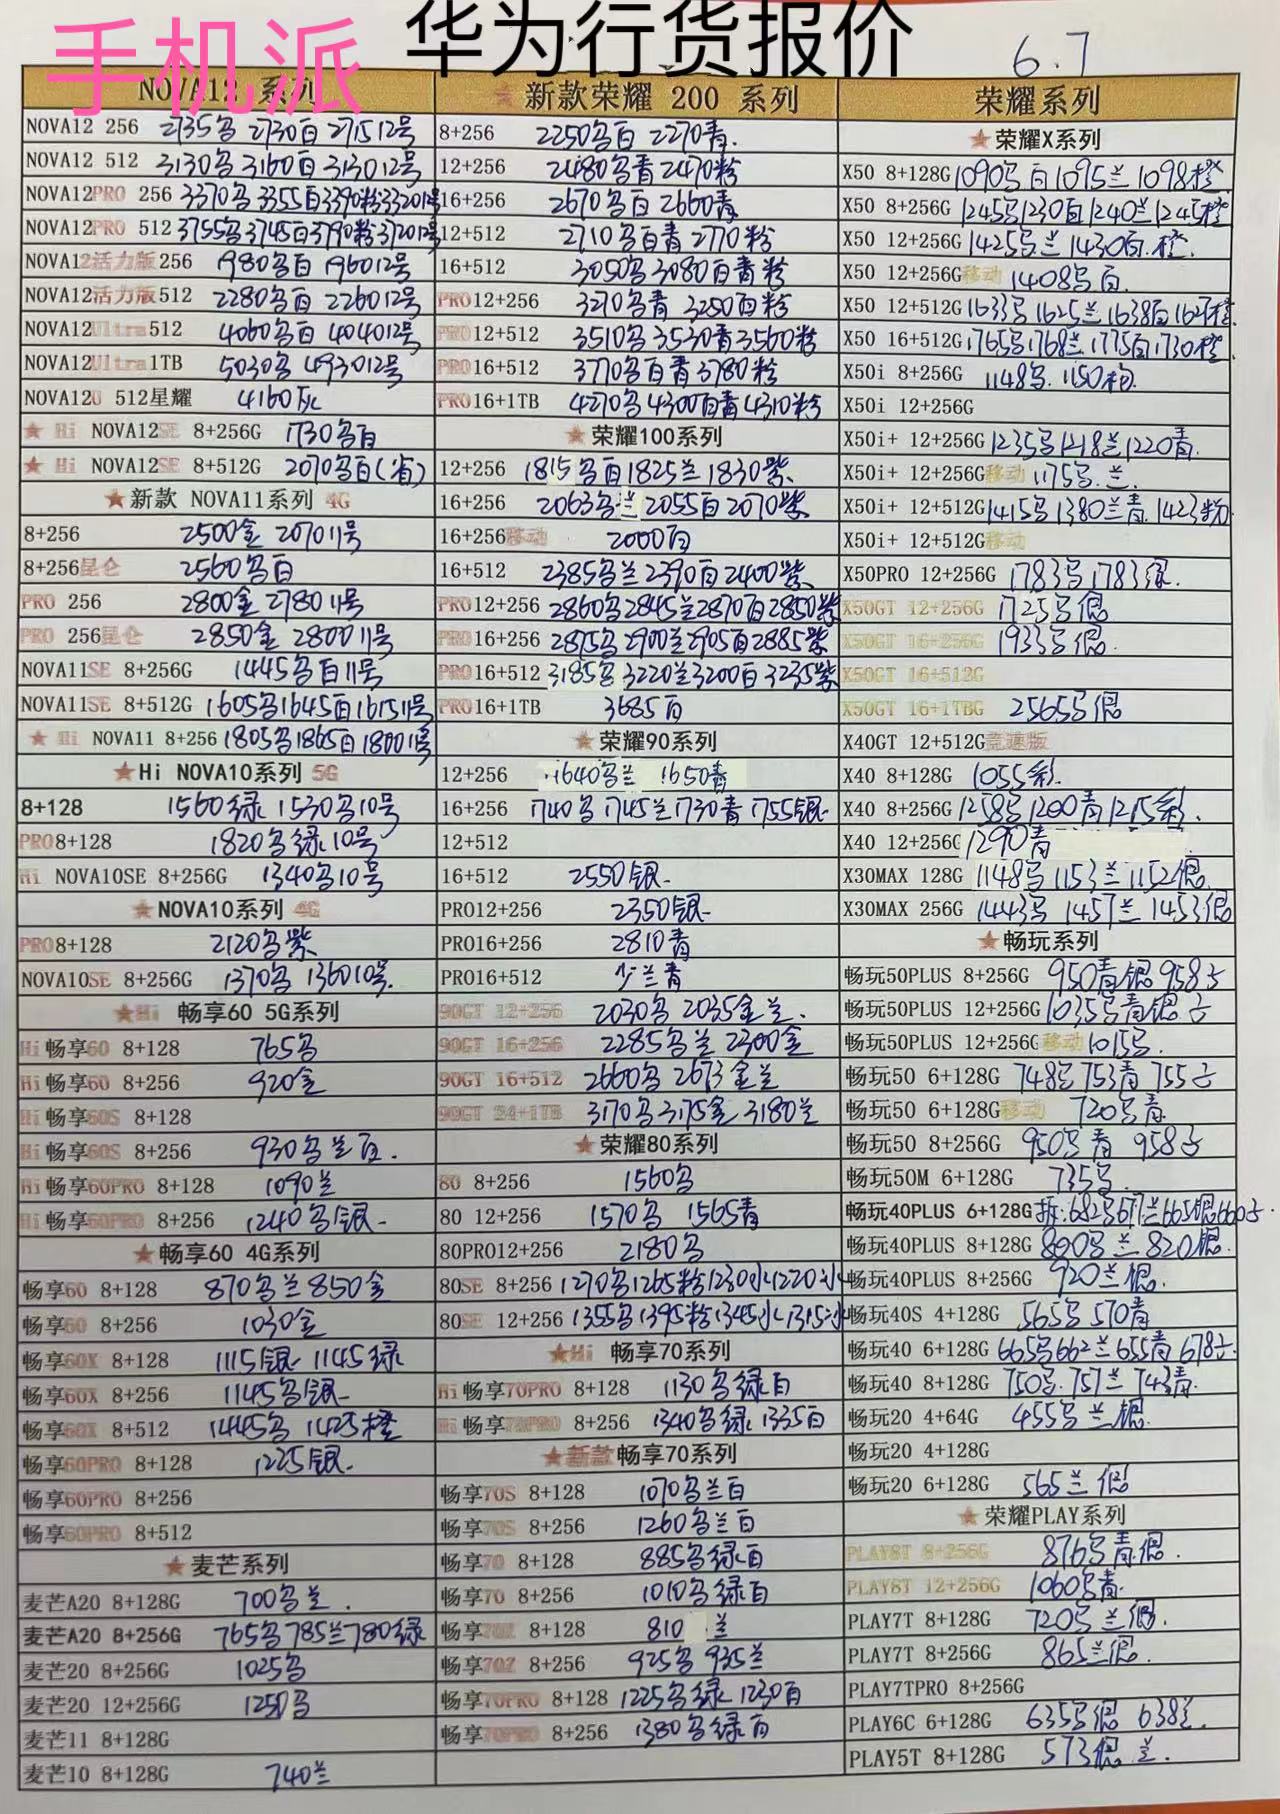 手机派
华为行货报价
6.7
NOVA12 系列
NOVA12 256 2735 2730白 2715 12号
NOVA12 512 3130 3160白 3130 12号
NOVA12PRO 256 3370 3355白 3390粉 3320 12号
NOVA12PRO 512 3755 3745白 3790粉 3720 12号
NOVA12活力版256 1980 白 1960 12号
NOVA12活力版512 2280 白 2260 12号
NOVA12Ultra512 4060 白 4040 12号
NOVA12Ultra1TB 5030 4930 12号
NOVA12U 512星耀 4160灰
★ Hi NOVA12SE 8+256G 1730 白
★ Hi NOVA12SE 8+512G 2070 白(省)
★新款 NOVA11系列 4G
8+256 2500金 2070 11号
8+256昆仑 2560 白
PRO 256 2800金 2780 11号
PRO 256昆仑 2850金 2800 11号
NOVA11SE 8+256G 1445 白 11号
NOVA11SE 8+512G 1605 1645白 1615 11号
★ Hi NOVA11 8+256 1805 1865白 1800 11号
★Hi NOVA10系列 5G
8+128 1560绿 1530 10号
PRO8+128 1820 绿 10号
Hi NOVA10SE 8+256G 1340 10号
★NOVA10系列 4G
PRO8+128 2120 紫
NOVA10SE 8+256G 1370 1360 10号
★Hi 畅享60 5G系列
Hi畅享60 8+128 765
Hi畅享60 8+256 920金
Hi畅享60S 8+128
Hi畅享60S 8+256 930 兰白.
Hi畅享60PRO 8+128 1090兰
Hi畅享60PRO 8+256 1240 银
★畅享60 4G系列
畅享60 8+128 870 兰 850金
畅享60 8+256 1030金
畅享60X 8+128 1115银 1145绿
畅享60X 8+256 1145 银
畅享60X 8+512 1445 1425橙
畅享60PRO 8+128 1225银
畅享60PRO 8+256
畅享60PRO 8+512
★麦芒系列
麦芒A20 8+128G 700 兰.
麦芒A20 8+256G 765 785兰 780绿
麦芒20 8+256G 1025
麦芒20 12+256G 1250
麦芒11 8+128G
麦芒10 8+128G 740兰
★ 新款荣耀 200 系列
8+256 2250 白 2270青.
12+256 2480 青 2470粉
16+256 2670 白 2660青
12+512 2710 白青 2770粉
16+512 3050 3080白青粉
PRO12+256 3270 青 3250白粉
PRO12+512 3510 3530青 3560粉
PRO16+512 3770 白青 3780粉
PRO16+1TB 4270 4300白青 4310粉
★荣耀100系列
12+256 1815 白 1825兰 1830紫
16+256 2063 兰 2055白 2070紫
16+256移动 2000白
16+512 2385 兰 2390白 2400紫
PRO12+256 2860 2845兰 2870白 2850紫
PRO16+256 2875 2900兰 2905白 2885紫
PRO16+512 3185 3220兰 3200白 3235紫
PRO16+1TB 3685白
★荣耀90系列
12+256 1640 兰 1650青
16+256 1740 1745兰 1730青 1755银
12+512
16+512 2550银
PRO12+256 2350银
PRO16+256 2810青
PRO16+512 少兰青
90GT 12+256 2030 2035金兰.
90GT 16+256 2285 兰 2300金
90GT 16+512 2660 2673金兰
90GT 24+1TB 3170 3175金 3180兰
★荣耀80系列
80 8+256 1560
80 12+256 1570 1565青
80PRO12+256 2180
80SE 8+256 1270 1265粉 1230 1220
80SE 12+256 1355 1395粉 1345 1315
★Hi 畅享70系列
Hi畅享70PRO 8+128 1130 绿白
Hi畅享70PRO 8+256 1340 绿 1335白
★新款畅享70系列
畅享70S 8+128 1070 兰白
畅享70S 8+256 1260 兰白
畅享70 8+128 885 绿白
畅享70 8+256 1010 绿白
畅享70Z 8+128 810 兰
畅享70Z 8+256 925 935兰
畅享70PRO 8+128 1225 绿 1230白
畅享70PRO 8+256 1380 绿白
荣耀系列
★荣耀X系列
X50 8+128G 1090 白 1095兰 1098橙
X50 8+256G 1245 1230白 1240兰 1245橙
X50 12+256G 1425 兰 1430白.橙.
X50 12+256G移动 1408 白.
X50 12+512G 1633 1625兰 1638白 1627橙
X50 16+512G 1765 1768兰 1775白 1730橙
X50i 8+256G 1148 1150
X50i 12+256G
X50i+ 12+256G 1235 1218兰 1220青
X50i+ 12+256G移动 1175 兰.
X50i+ 12+512G 1415 1380兰青 1423粉
X50i+ 12+512G移动
X50PRO 12+256G 1783 1783
X50GT 12+256G 1725 银
X50GT 16+256G 1933 银.
X50GT 16+512G
X50GT 16+1TBG 2565 银
X40GT 12+512G竞速版
X40 8+128G 1055彩.
X40 8+256G 1258 1200青 1215彩.
X40 12+256G 1290青
X30MAX 128G 1148 1153兰 1152银.
X30MAX 256G 1443 1457兰 1453银
★畅玩系列
畅玩50PLUS 8+256G 950青银 958
畅玩50PLUS 12+256G 1035 青银
畅玩50PLUS 12+256G移动 1015
畅玩50 6+128G 748 753青 755
畅玩50 6+128G移动 720 青
畅玩50 8+256G 950 青 958
畅玩50M 6+128G 735
畅玩40PLUS 6+128G 682 677兰 665银 660
畅玩40PLUS 8+128G 800 兰 820银
畅玩40PLUS 8+256G 920兰银.
畅玩40S 4+128G 565 570青
畅玩40 6+128G 665 662兰 655青 678
畅玩40 8+128G 750 757兰 743青.
畅玩20 4+64G 455 兰银
畅玩20 4+128G
畅玩20 6+128G 565兰银
★荣耀PLAY系列
PLAY8T 8+256G 876 青银.
PLAY8T 12+256G 1060 青.
PLAY7T 8+128G 720 兰银.
PLAY7T 8+256G 865兰银.
PLAY7TPRO 8+256G
PLAY6C 6+128G 635 银 638兰.
PLAY5T 8+128G 573银兰.